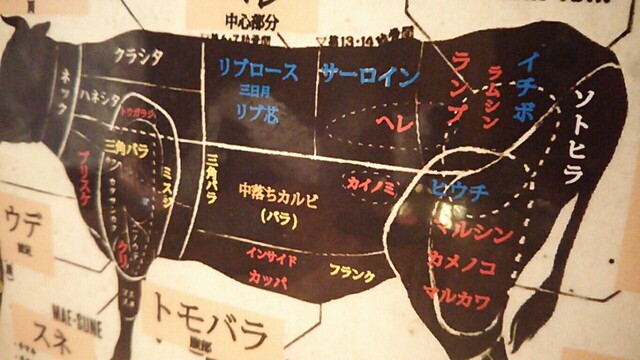 中心部分
クラシタ
ネック
ハネシタ
トウガラシ
三角バラ
ブリスケ
ミスジ
クリ
リブロース
三日月
リブ芯
サーロイン
ヘレ
ランプ
ラムシン
イチボ
ソトヒラ
三角バラ
中落ちカルビ
(バラ)
カイノミ
ヒウチ
マルシン
カメノコ
マルカワ
インサイド
カッパ
フランク
ウデ
MAE-SUNE
スネ
トモバラ
腹部